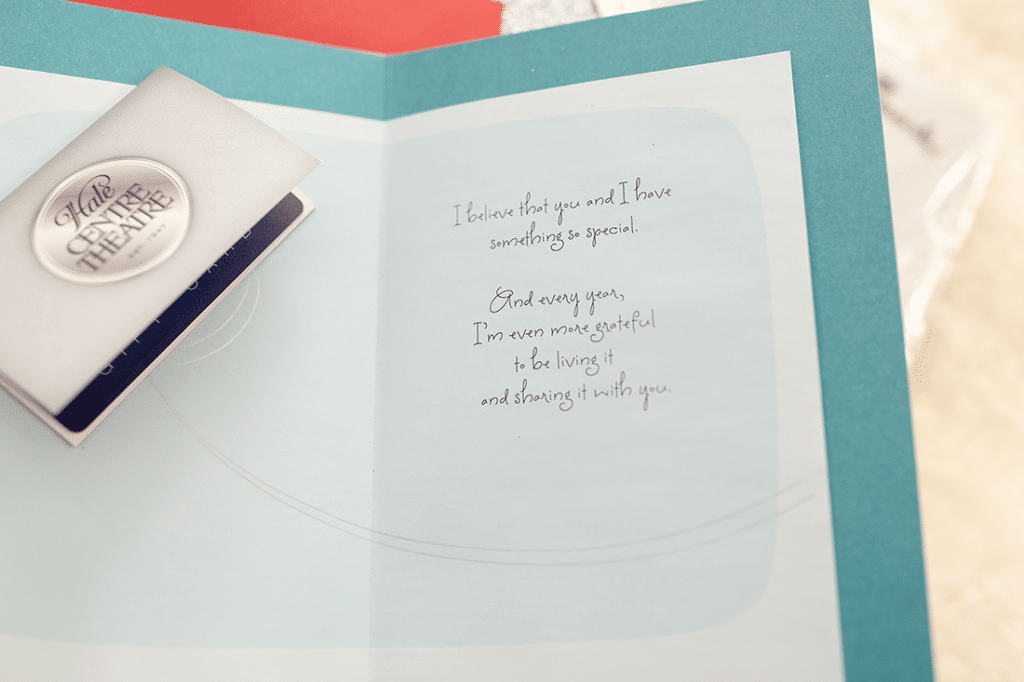 Hale
CENTRE
THEATRE
EST. 1947
GIFT CARD
I believe that you and I have
something so special.
And every year,
I'm even more grateful
to be living it
and sharing it with you.